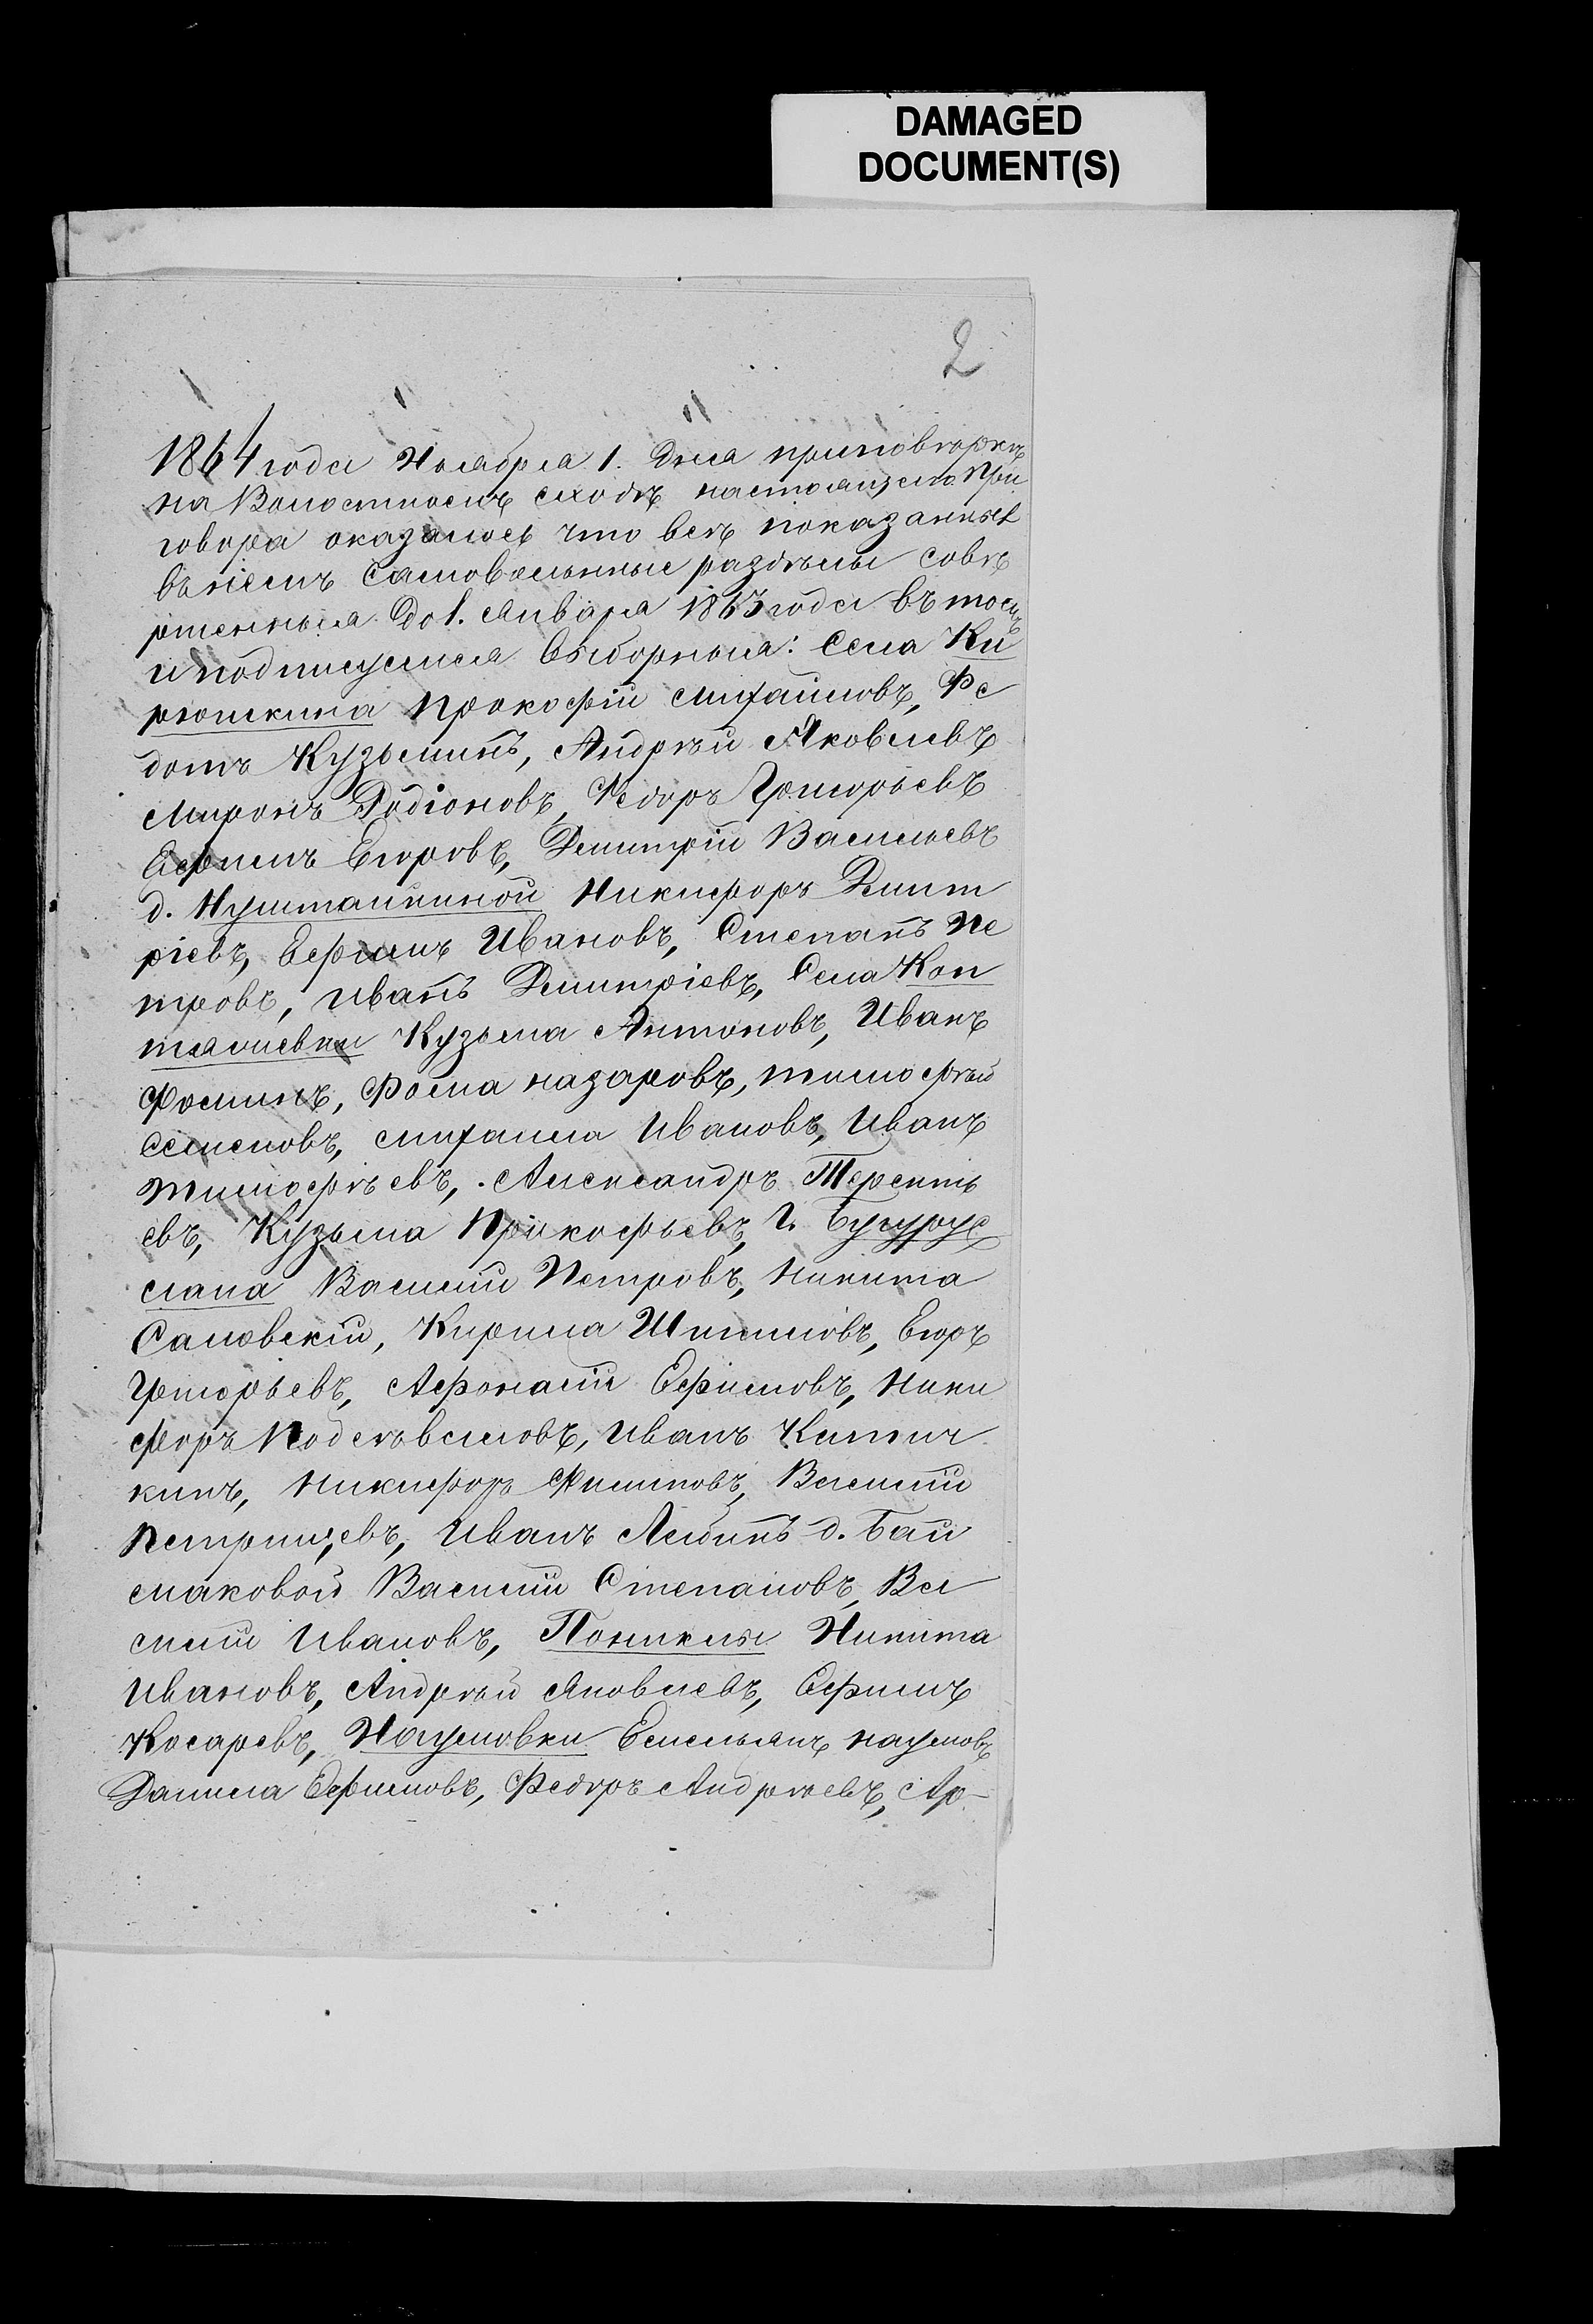 DAMAGED
DOCUMENT(S)
2
1864 года Ноября 1. Дня приповѣркѣ
на Волостномъ сходѣ настоящего При
говора оказалось что всѣ показанныя
въ нёмъ Самовольныя раздѣлы совѣ
ршенныя до 1. Января 1863 года въ томъ
и подписуемся выборныя: Села Ки
рюшкина Прокофій Михайловъ, Фе
дотъ Кузьминъ, Андрѣй Яковлевъ
Миронъ Родіоновъ, Федоръ Григорьевъ
Ефимъ Егоровъ, Дмитрій Васильевъ
д. Нуштайкиной Никифоръ Дмит
ріевъ, Ефимъ Ивановъ, Степанъ Пе
тровъ, Иванъ Дмитріевъ, Села Кон
Кузьма Антоновъ, Иванъ
Фоминъ, Фома Назаровъ, Тимофѣй
Семеновъ, Михаила Ивановъ, Иванъ
Тимофѣевъ, Александръ Терентъ
евъ, Кузьма Прокофьевъ, г. Бугурус
лана Василій Петровъ, Никита
Саловскій, Кирила Шишловъ, Егоръ
Григорьевъ, Афонасій Ефимовъ, Ники
форъ Иванъ
кинъ, Никифоръ Филиповъ, Василій
Петрищевъ, Иванъ д. Бай
маковой Василій Степановъ, Ва
силій Ивановъ, Поникли Никита
Ивановъ, Андрѣй Яковлевъ, Ефимъ
Косаревъ, Наумовки Емельянъ Наумовъ
Данила Ефимовъ, Федоръ Андрѣевъ, Ар-